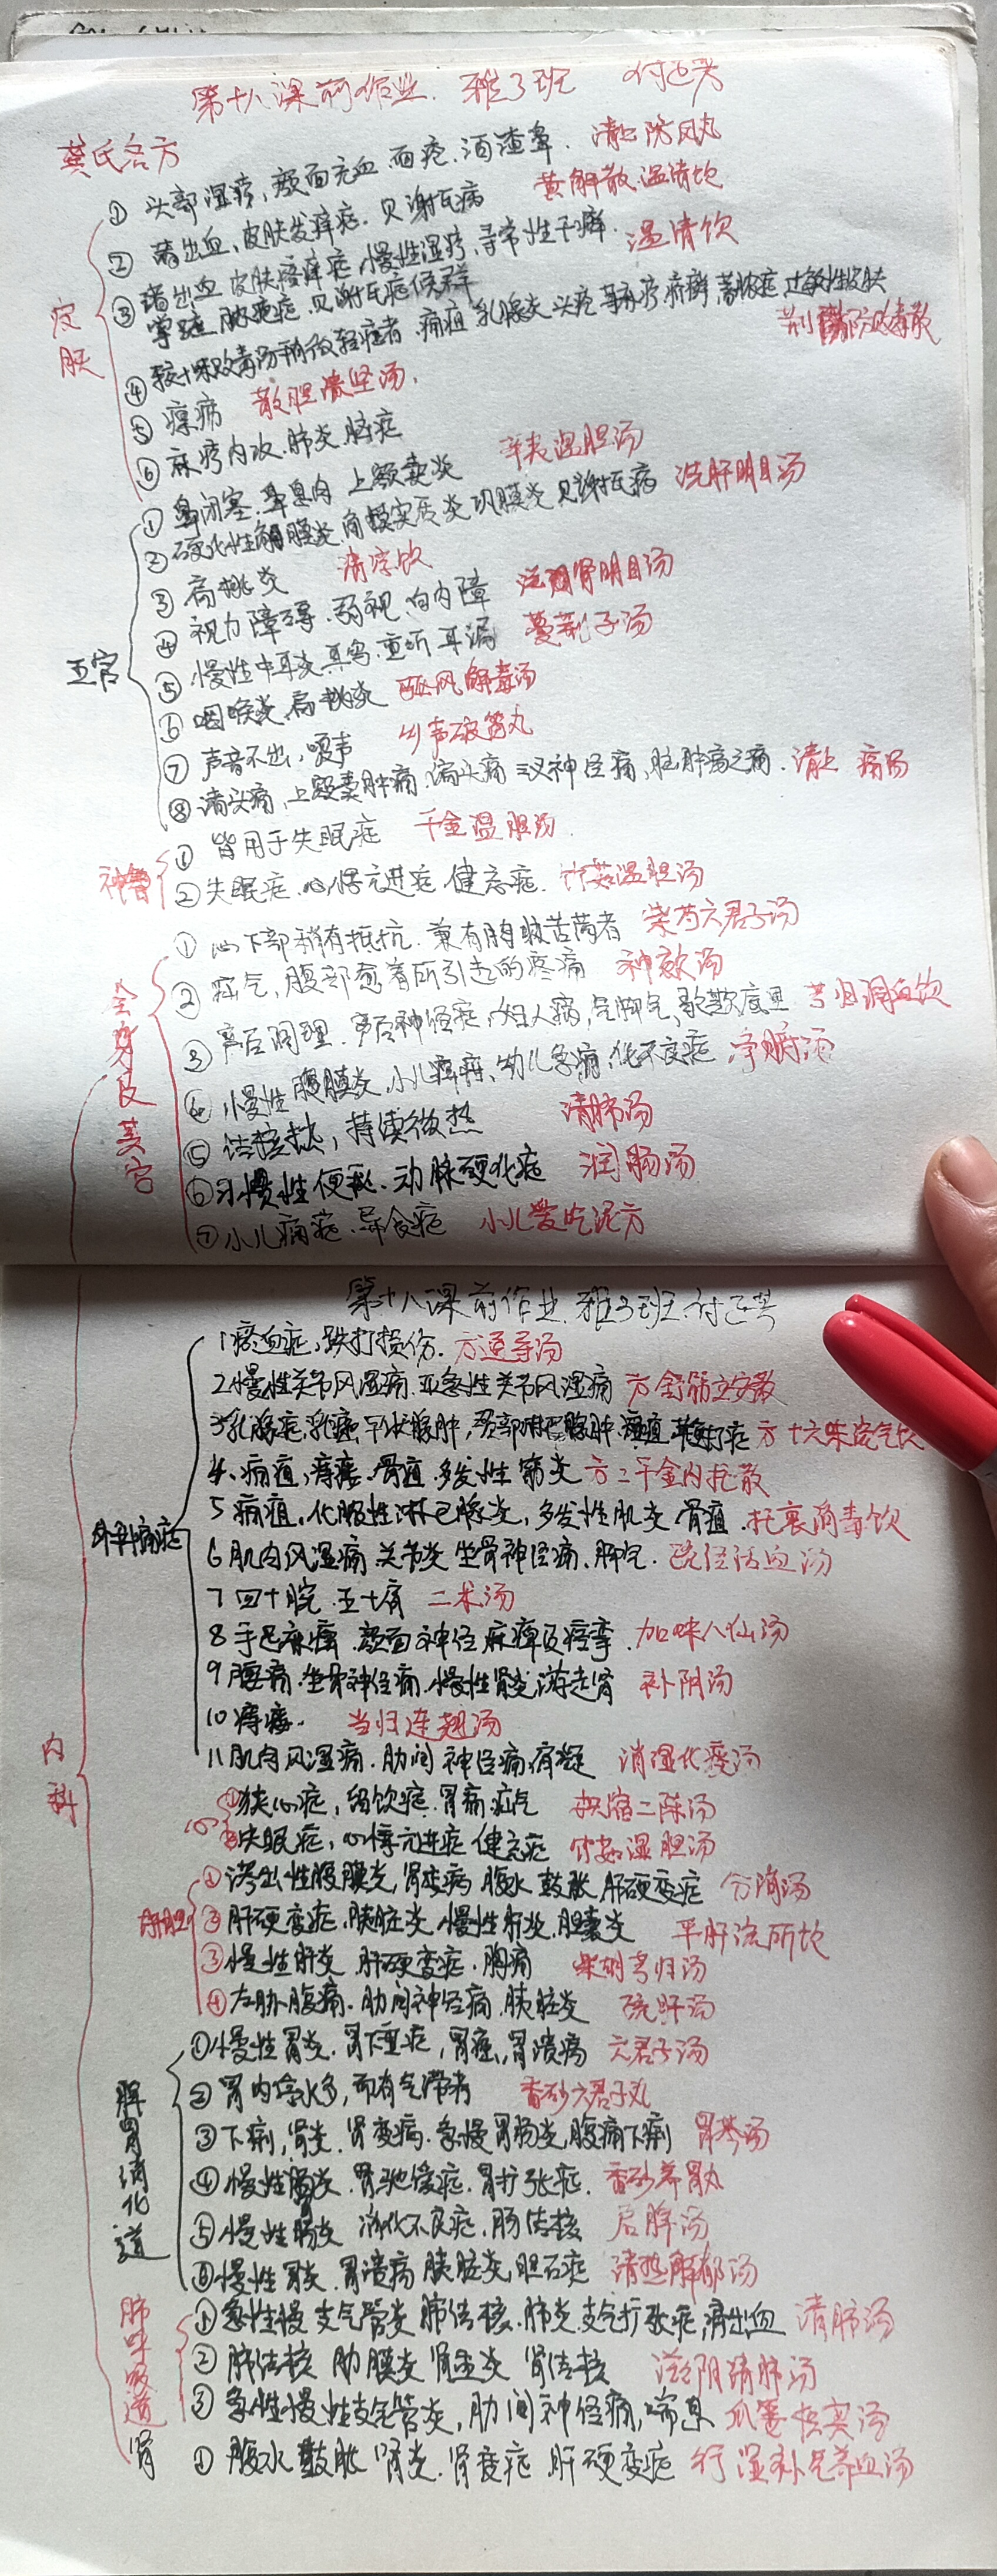 第十八课前作业. 雅3班
龚氏名方
皮肤
① 头部湿疹, 颜面充血 面疱. 酒渣鼻. 清上防风丸
② 诸出血, 皮肤发痒症. 贝谢氏病 黄解散.温清饮
③ 诸出血 皮肤瘙痒症 慢性湿疹, 寻常性干癣. 温清饮
贝谢氏症候群
④ 较十味败毒防稍微轻症者. 痈疽 乳腺炎 头疮 疥癣 蓄脓症 过敏性皮肤
荆防败毒散
⑤ 瘰疬 散肿溃坚汤.
⑥ 麻疹内攻. 肺炎. 脑症
五官
① 鼻闭塞. 鼻息肉 上颚囊炎 辛夷温胆汤
② 硬化性角膜炎, 角膜实质炎 巩膜炎 贝谢氏病 洗肝明目汤
③ 扁桃炎 清凉饮
④ 视力障碍. 弱视. 白内障 滋肾明目汤
⑤ 慢性中耳炎 耳鸣. 重听 耳漏 蔓荆子汤
⑥ 咽喉炎. 扁桃炎 驱风解毒汤
⑦ 声音不出, 嗄声 响声破笛丸
⑧ 诸头痛, 上颚囊肿痛. 偏头痛 三叉神经痛, 脑肿疡之痛. 清上 痛汤
神智
① 皆用于失眠症 千金温胆汤.
② 失眠症. 心悸亢进症 健忘症. 竹茹温胆汤
全身及其它
① 心下部稍有抵抗. 兼有胸胁苦满者 柴芍六君子汤
② 疝气, 腹部愈着所引起的疼痛 神效汤
③ 产后调理. 产后神经症, 妇人病, 气脚气, 芎归调血饮
④ 慢性腹膜炎, 小儿痞疳, 幼儿 化不良症 净腑汤
⑤ 结核热, 持续微热 清肺汤
⑥ 慢性便秘. 动脉硬化症 润肠汤
⑦ 小儿疳症. 异食症 小儿爱吃泥方
第十八课前作业. 雅3班.
内科
外科痛症
1 瘀血症, 跌打损伤. 方 通导汤
2 慢性关节风湿痛. 亚急性关节风湿痛 方 舒筋立安散
3 乳腺症, 乳癌 甲状腺肿, 颈部淋巴腺肿. 痈疽 方 十六味流气饮
4、痈疽, 痔瘘. 骨疽. 多发性筋炎 方: 千金内托散
5 痈疽, 化脓性淋巴腺炎, 多发性肌炎 骨疽. 托裏消毒饮
6 肌肉风湿痛 关节炎 坐骨神经痛. 脚气. 疏经活血汤
7 四十腕. 五十肩 二术汤
8 手足麻痛. 颜面神经麻痺及痉挛. 加味八仙汤
9 腰痛. 坐骨神经痛. 慢性肾炎 游走肾 补阴汤
10 痔瘘. 当归连翘汤
11 肌肉风湿痛. 肋间神经痛 肩凝 消湿化痰汤
心
① 狭心症, 留饮症. 胃痛 疝气 枳缩二陈汤
② 失眠症, 心悸亢进症 健忘症 竹茹温胆汤
肝胆
① 渗出性腹膜炎, 肾变病 腹水 鼓胀 肝硬变症 分消汤
② 肝硬变症. 胰脏炎. 慢性肝炎. 胆囊炎 平肝流气饮
③ 慢性肝炎 肝硬变症. 胸痛 柴胡芎归汤
④ 左胁腹痛. 肋间神经痛. 胰脏炎 疏肝汤
脾胃消化道
① 慢性胃炎. 胃下垂症, 胃癌, 胃溃疡 六君子汤
② 胃内停水多, 而有气滞者 香砂六君子丸
③ 下痢, 肾炎. 肾变病. 急慢胃肠炎, 腹痛下痢 胃苓汤
④ 慢性肠炎. 胃弛缓症. 胃扩张症. 香砂养胃丸
⑤ 慢性肠炎 消化不良症. 肠结核 启脾汤
⑥ 慢性胃炎. 胃溃疡 胰脏炎, 胆石症 清热解郁汤
肺呼吸道
① 急性慢 支气管炎 肺结核. 肺炎. 支气扩张症, 诸出血 清肺汤
② 肺结核 肋膜炎 肾盂炎 肾结核 滋阴清肺汤
③ 急性慢性支气管炎, 肋间神经痛, 喘息 瓜蒌枳实汤
肾
① 腹水 鼓胀 肾炎. 肾变症 肝硬变症 行湿补气养血汤